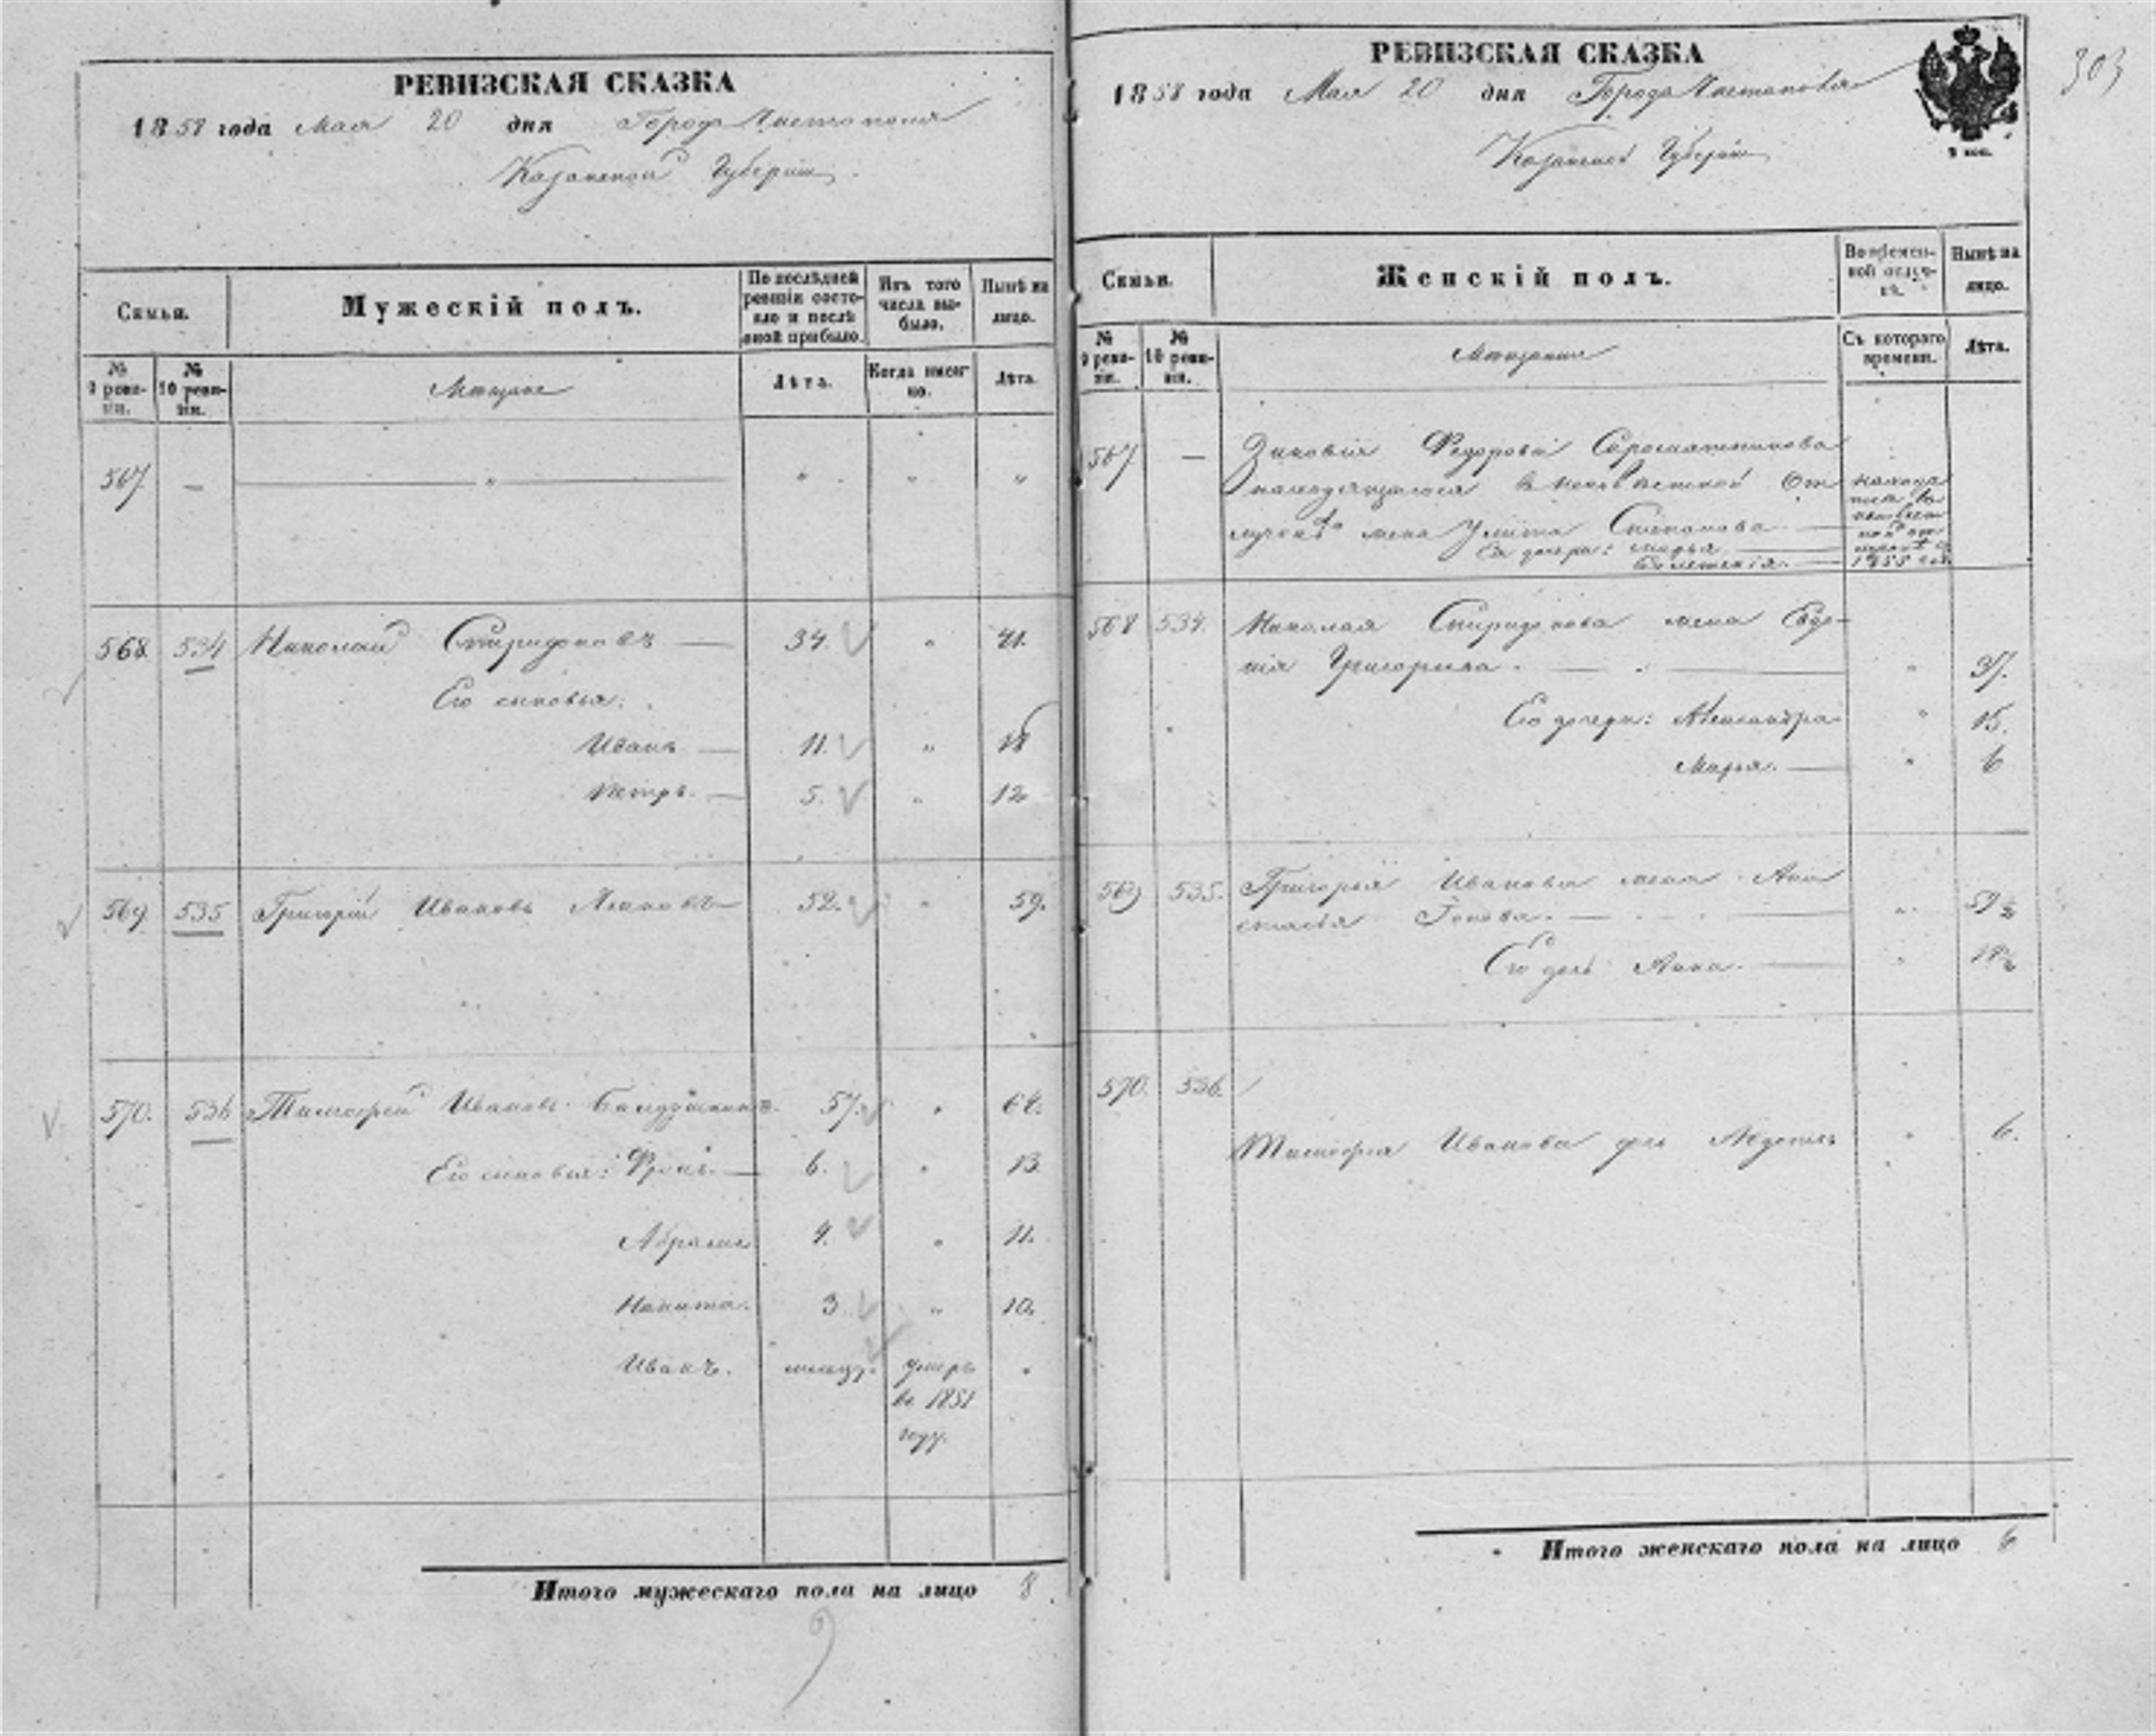 РЕВИЗСКАЯ СКАЗКА
1858 года Мая 20 дня Города Чистополя
Казанской Губернии.
Семьи.
Мужескій полъ.
По послѣдней ревизіи состояло и послѣ оной прибыло.
Изъ того числа выбыло.
Нынѣ на лицо.
№ 9 ревизіи.
№ 10 ревизіи.
Мещане
Лѣта.
Когда именно.
Лѣта.
567 — — " — " " "
568. 534 Николай Спиридоновъ — 34. " 41.
Его сыновья:
Иванъ — 11. " 18
Петръ. — 5. " 12
569. 535 Григорій Ивановъ 52. " 59.
570. 536 Тимофей Ивановъ 57. " 64.
Его сыновья: Фролъ. — 6. " 13.
Абрамъ 4. " 11.
Никита. 3 " 10.
Иванъ. умеръ "
во 1851
году.
Итого мужескаго пола на лицо 8
9
РЕВИЗСКАЯ СКАЗКА
303
1858 года Мая 20 дня Города Чистополя
Казанской Губерніи
Семьи.
Женскій полъ.
Во временной отлучкѣ.
Нынѣ на лицо.
№ 9 ревизіи.
№ 10 ревизіи.
Мещанки
Съ котораго времени.
Лѣта.
567 — Зиновія Федорова
находящагося в неизвѣстной От
лучкѣ жена Улита Степанова —
Ея дочери: Марья —
1855 год
568 534. Николая Спиридонова жена Евдо-
кія Григорьева. — " 37.
Его дочери: Александра " 15.
Марья. — " 6
569 535. Григорья Иванова жена Ана
стасья — "
Его дочь Анна. — "
570. 536.
Тимофея Иванова дочь " 6.
Итого женскаго пола на лицо 6